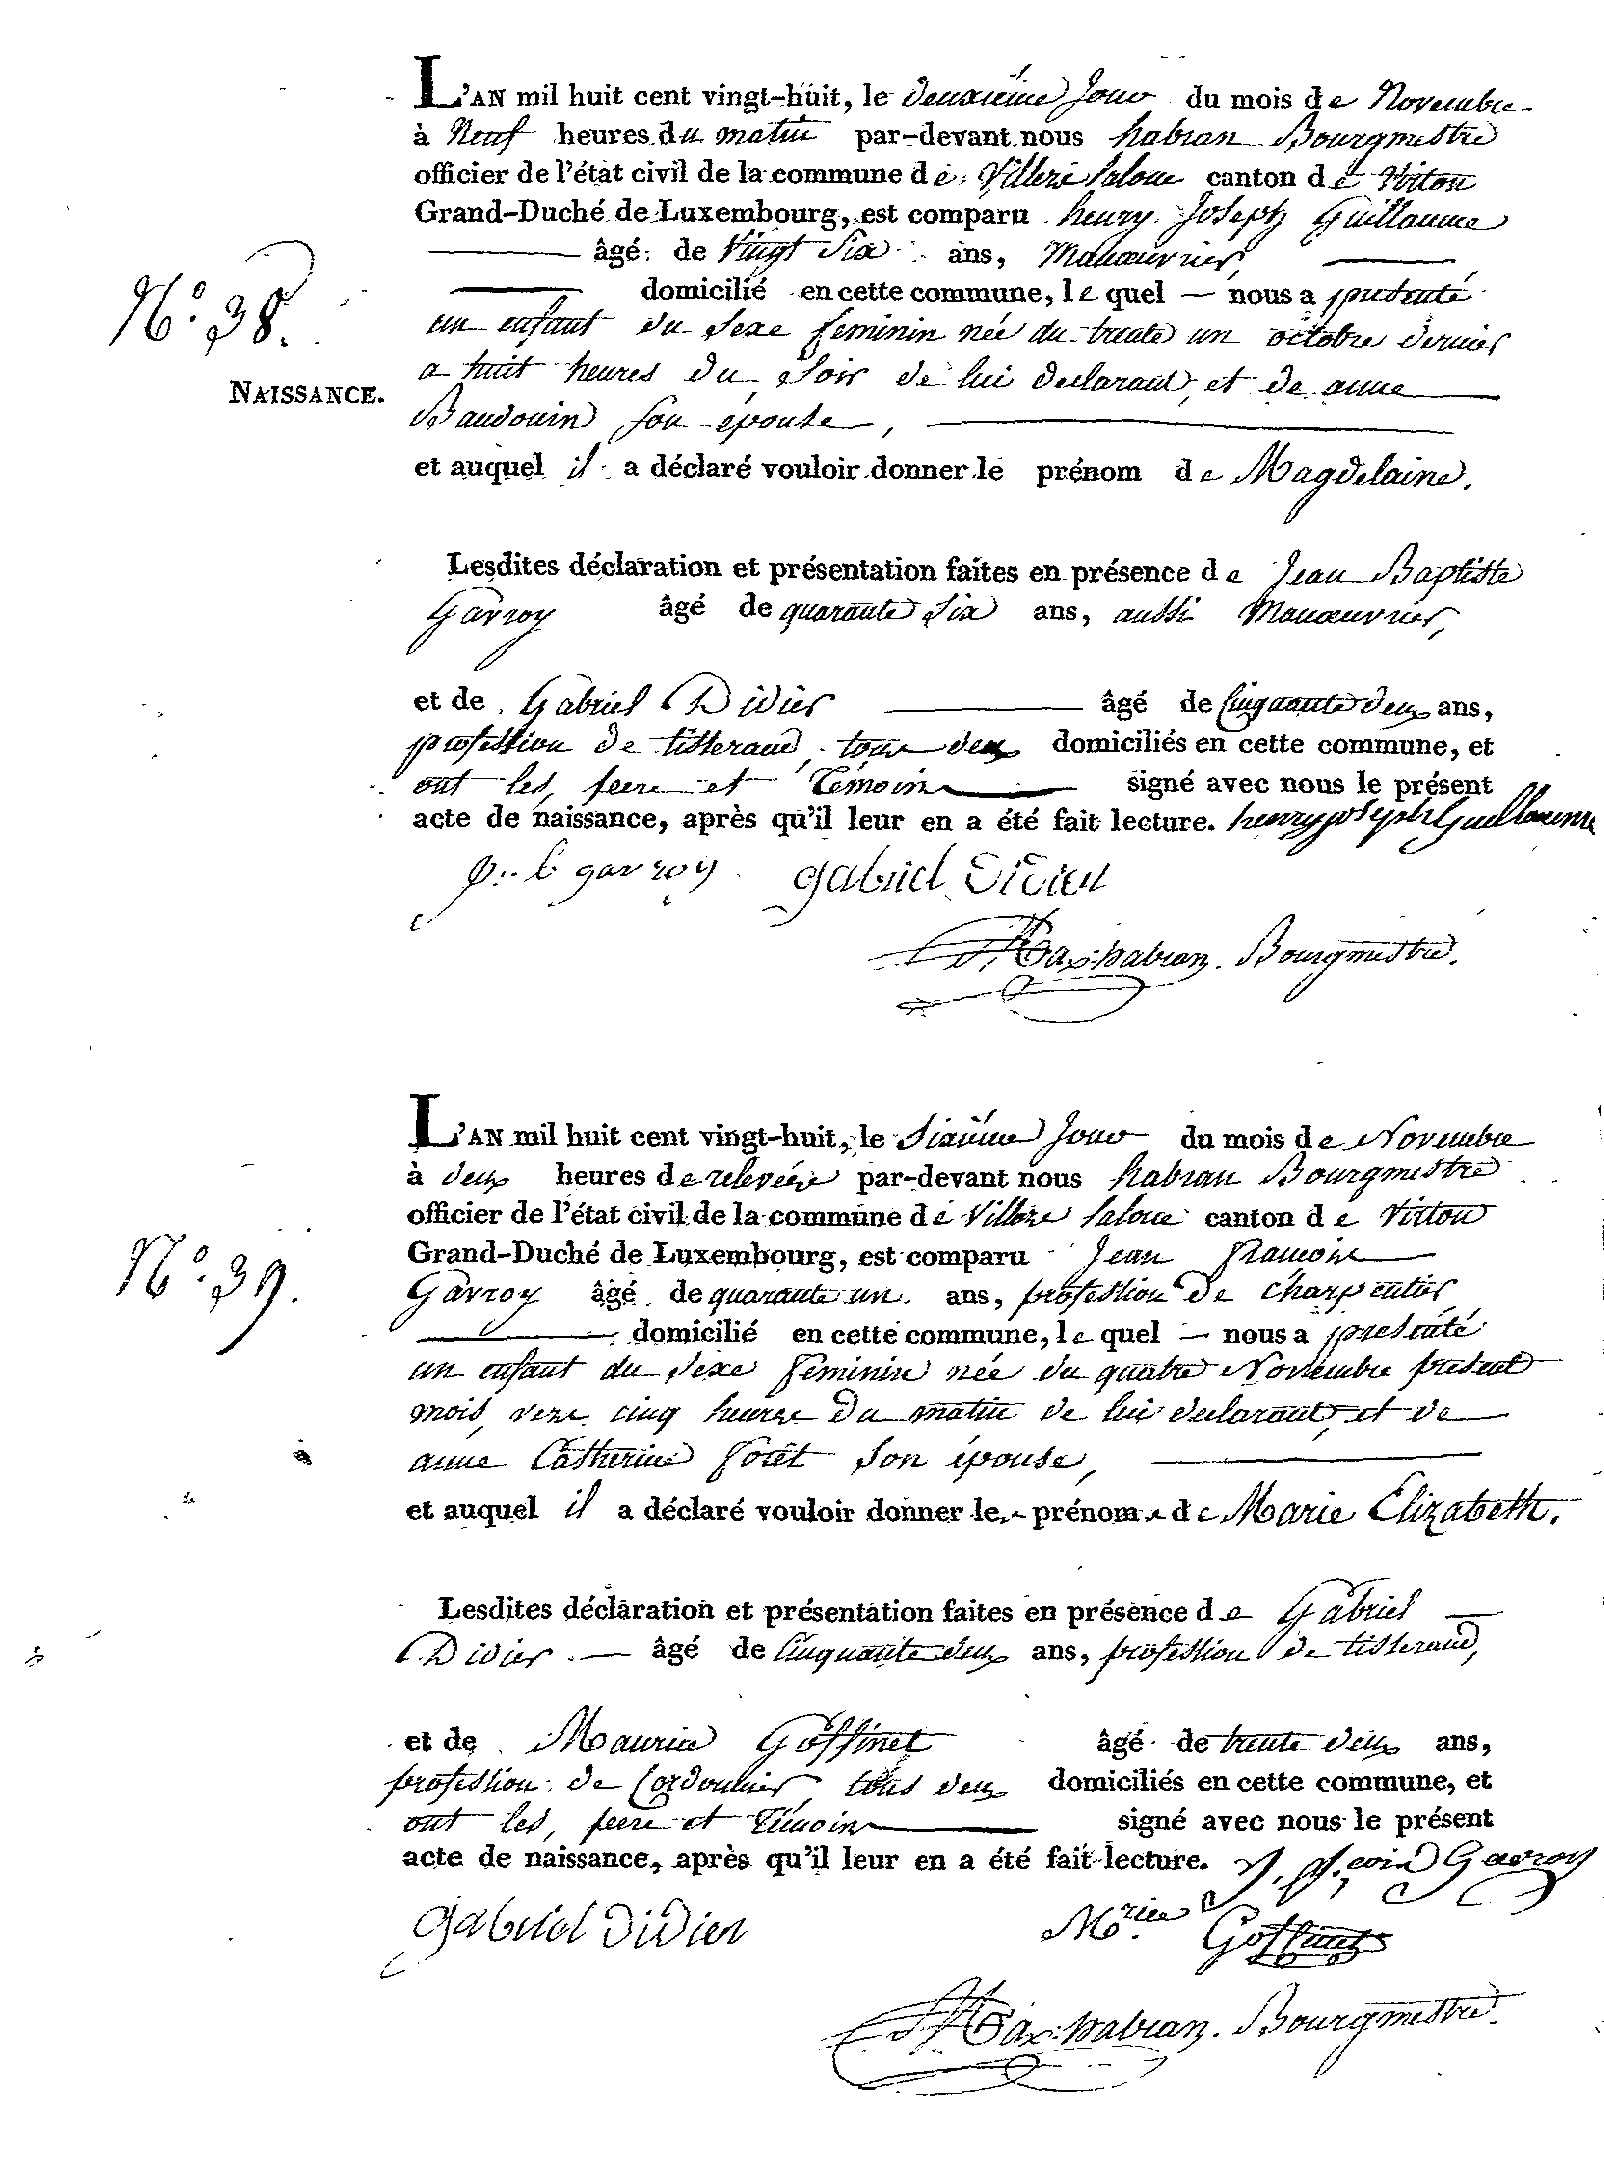 L'AN mil huit cent vingt-huit, le deuxième Jour du mois de Novembre
à Neuf heures du matin par-devant nous habran Bourgmestre
officier de l'état civil de la commune de Villers sur canton de Virton
Grand-Duché de Luxembourg, est comparu henry Joseph Guillaume
âgé de Vingt Six ans, Manoeuvrier,
domicilié en cette commune, le quel — nous a presenté
N.º 38.
un enfant du sexe feminin née du trente un octobre dernier
NAISSANCE.
a huit heures du soir de lui declarant, et de anne
Baudouin son épouse,
et auquel il a déclaré vouloir donner le prénom de Magdelaine.
Lesdites déclaration et présentation faites en présence de Jean Baptiste
Gavroy âgé de quarante six ans, aussi Manoeuvrier,
et de Gabriel Didier âgé de Cinquante deux ans,
profession de tisserand, tous deux domiciliés en cette commune, et
ont les, peere et Témoins signé avec nous le présent
acte de naissance, après qu'il leur en a été fait lecture. henry joseph Guillaume
j: b gavroy gabriel Didier
Max: habran. Bourgmestre.
L'AN mil huit cent vingt-huit, le Sixième Jour du mois de Novembre
à deux heures de relevée par-devant nous habran Bourgmestre
officier de l'état civil de la commune de canton de Virton
Grand-Duché de Luxembourg, est comparu Jean
N.º 39.
Gavroy âgé de quarante un ans, profession de charpentier
domicilié en cette commune, le quel — nous a presenté
un enfant du sexe feminin née du quatre Novembre present
mois, vers cinq heures du matin de lui declarant, et de
anne Catherine Forêt son épouse,
et auquel il a déclaré vouloir donner les prénoms de Marie Elizabeth.
Lesdites déclaration et présentation faites en présence de Gabriel
Didier — âgé de Cinquante deux ans, profession de tisserand,
et de Maurice Goffinet âgé de trente deux ans,
profession de Cordonnier, tous deux domiciliés en cette commune, et
ont les, peere et Témoins signé avec nous le présent
acte de naissance, après qu'il leur en a été fait lecture. Gavroy
gabriel Didier M.rice Goffinet
Max: habran. Bourgmestre.